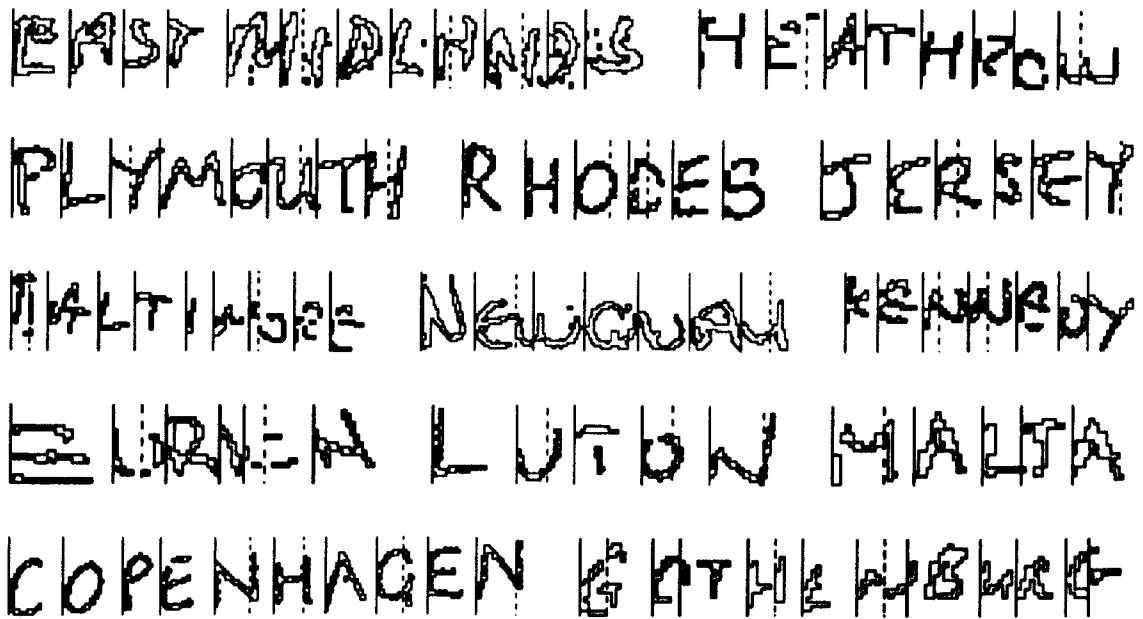 EAST MIDLANDS HEATHROW
PLYMOUTH RHODES JERSEY
NEWQUAY KENNEDY
LUTON MALTA
COPENHAGEN GOTHENBURG